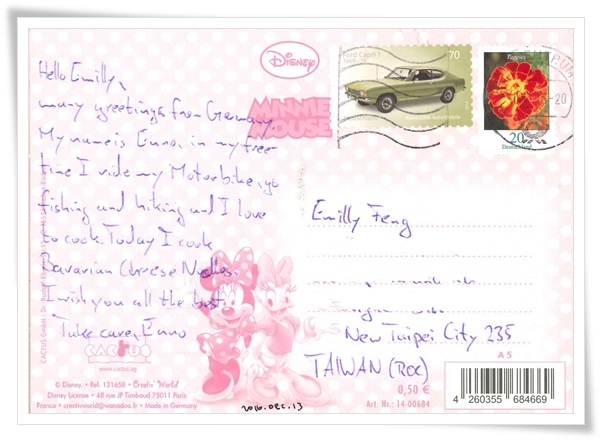 Hello Emilly,
many greetings from Germany.
My name is Enno, in my free
time I ride my Motorbike, go
fishing and hiking and I love
to cook. Today I cook
Bavarian Cheese Nudles.
I wish you all the best
Take care, Enno
Disney
MINNIE
MOUSE
Ford Capri I
70
Tagetes
20
Deutschland
Emilly Feng
New Taipei City 235
TAIWAN (ROC)
A 5
0,50 €
Art. Nr.: 14-00684
4 260355 684669
CACTUS
www.cactus.ag
© Disney. • Ref. 131658 • Creativ' World
Disney License • 48 rue JP Timbaud 75011 Paris
France • creativworld@wanadoo.fr • Made in Germany
2016.DEC.13